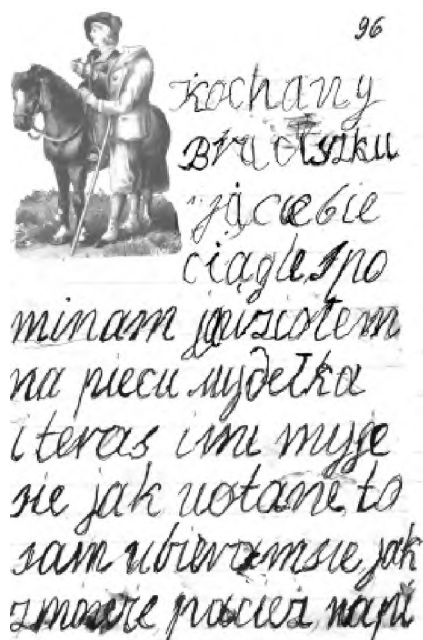 96
Kochany
Bratyszku
ja cæbie
ciągle, spo
minam jawziołem
na piecu mydełka
i teras imi myje
sie jak vstane, to
sam ubieramsie, jak
zmowie pacież napi